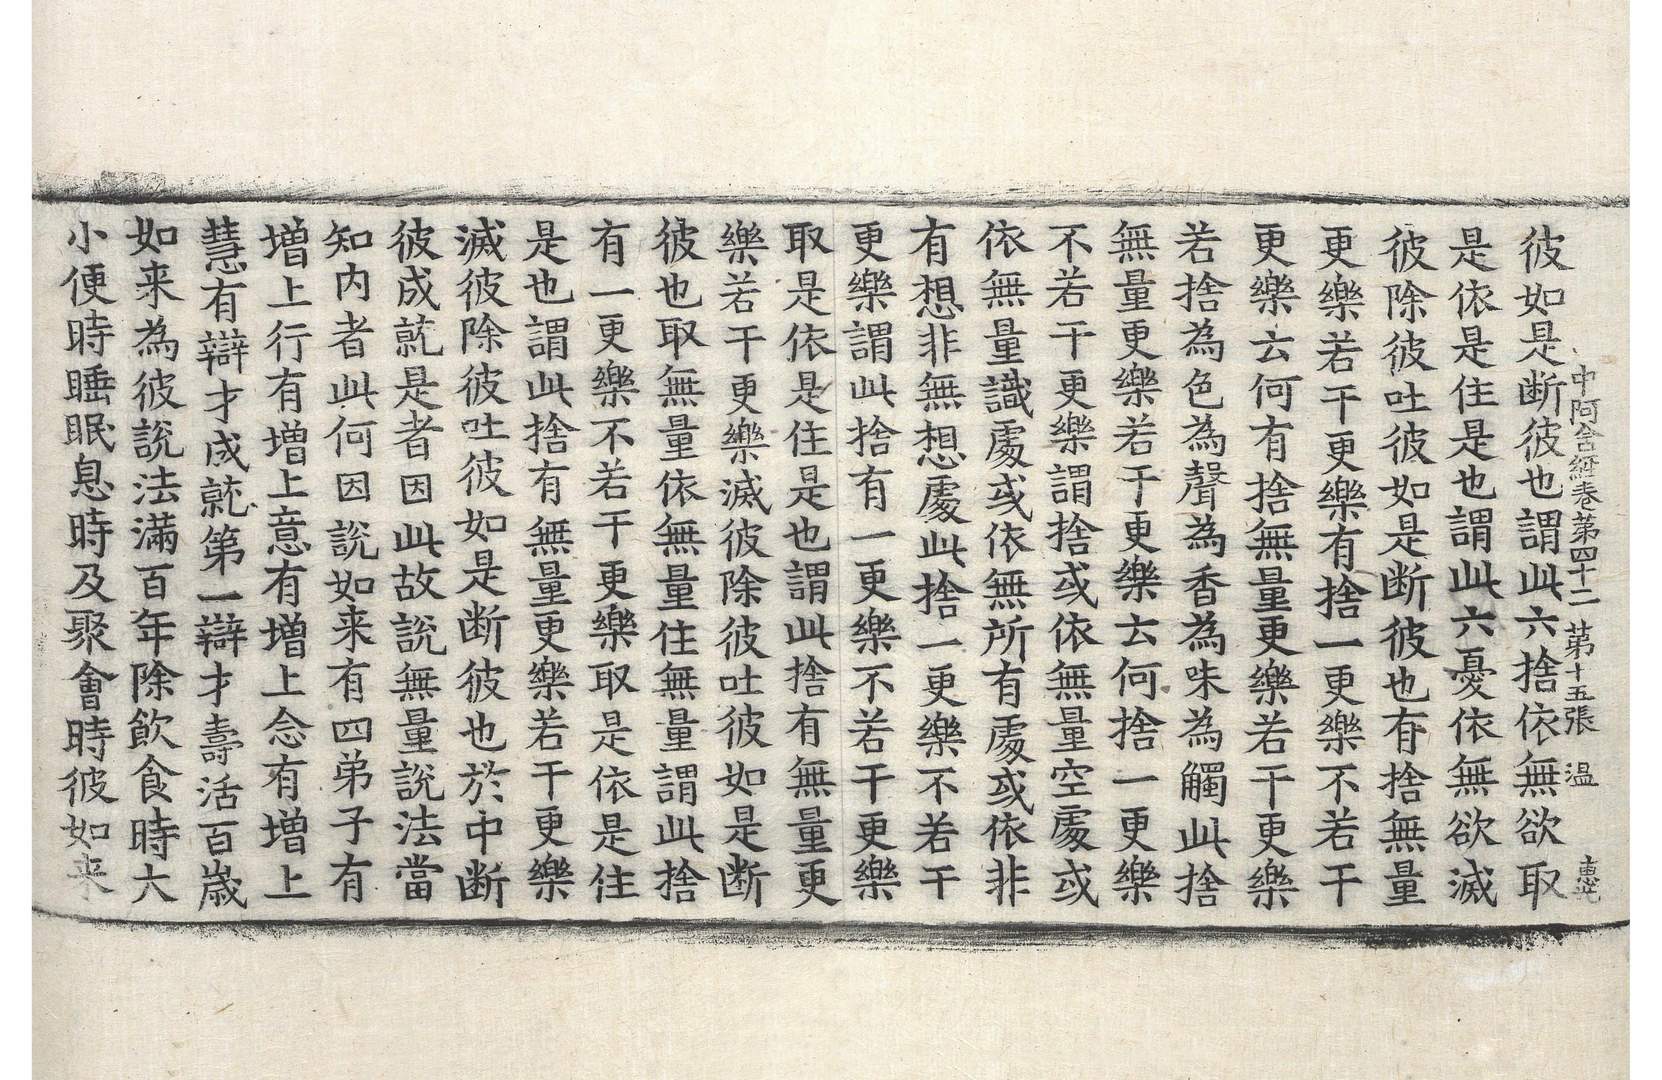 中阿含經卷第四十二 第十五張 温
彼如是断彼也謂此六捨依無欲取
是依是住是也謂此六憂依無欲滅
彼除彼吐彼如是断彼也有捨無量
更樂若干更樂有捨一更樂不若干
更樂云何有捨無量更樂若干更樂
若捨為色為聲為香為味為觸此捨
無量更樂若干更樂云何捨一更樂
不若干更樂謂捨或依無量空處或
依無量識處或依無所有處或依非
有想非無想處此捨一更樂不若干
更樂謂此捨有一更樂不若干更樂
取是依是住是也謂此捨有無量更
樂若干更樂滅彼除彼吐彼如是断
彼也取無量依無量住無量謂此捨
有一更樂不若干更樂取是依是住
是也謂此捨有無量更樂若干更樂
滅彼除彼吐彼如是断彼也於中断
彼成就是者因此故說無量說法當
知内者此何因說如来有四弟子有
增上行有增上意有增上念有增上
慧有辯才成就第一辯才壽活百歲
如来為彼說法滿百年除飲食時大
小便時睡眠息時及聚會時彼如来